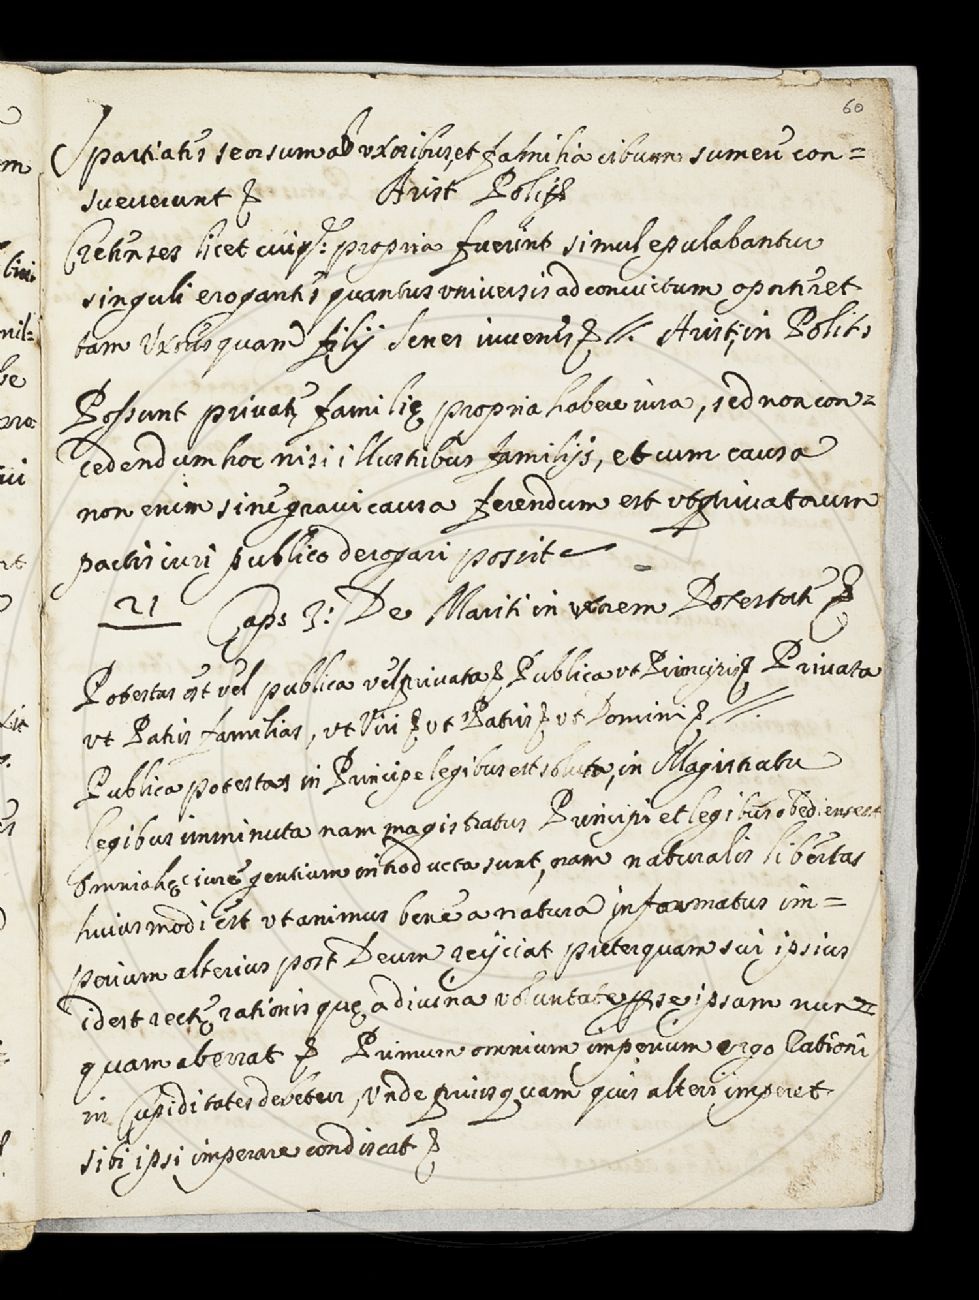 60
Spartiates seorsum ab uxoribus, et familia cibum sumere con=
sueverunt Arist Polit
Cretenses licet cuiq; propria fuerint simul epulabantur
singuli erogantes quantus universis ad convictum oporteret
tam Uxores quam filij senes iuvenes //. Arist; in Polit:
Possunt privatę familię propria habere iura, sed non con=
cedendum hoc nisi illustribus familijs, et cum causa
non enim sine gravi causa ferendum est ut privatorum
pactis iuri publico derogari possit
21 Caps 3: De Mariti in uxorem Potestate
Potestas est vel publica vel privata Publica ut Principis Privata
ut Patris familias, ut Viri ut Patris ut Domini //.
Publica potestas in Principe legibus est soluta, in Magistratu
legibus imminuta nam magistratus Principi et legibus obediens est
Omnia hęc iure gentium introducta sunt, nam naturalis libertas
huiusmodi est ut animus bene a natura informatus im=
perium alterius post Deum reijciat preterquam sui ipsius
idest rectę rationis quę a divina voluntate se ipsam nun=
quam aberrat Primum omnium imperium ergo Rationi
in Cupiditates debetur, Unde priusquam quis alteri imperet
sibi ipsi imperare condiscat